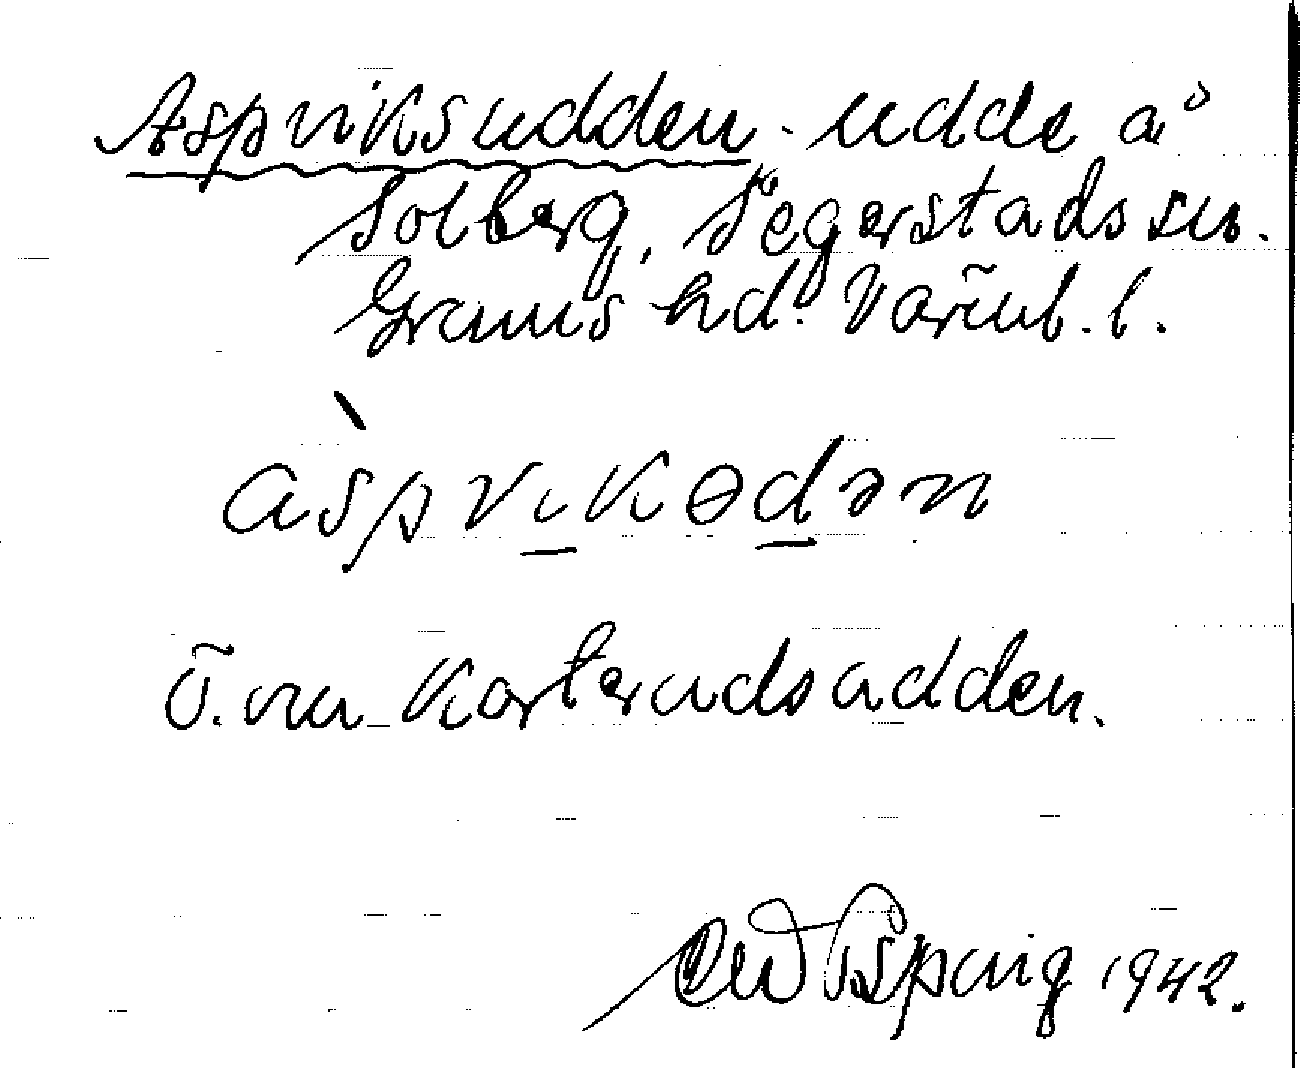 Aspviksudden - udde å
Solberg, Segerstads sn.
Grums hd. Värml. l.
àspvikɵdən
Ö. om Karterudsudden.
1942.